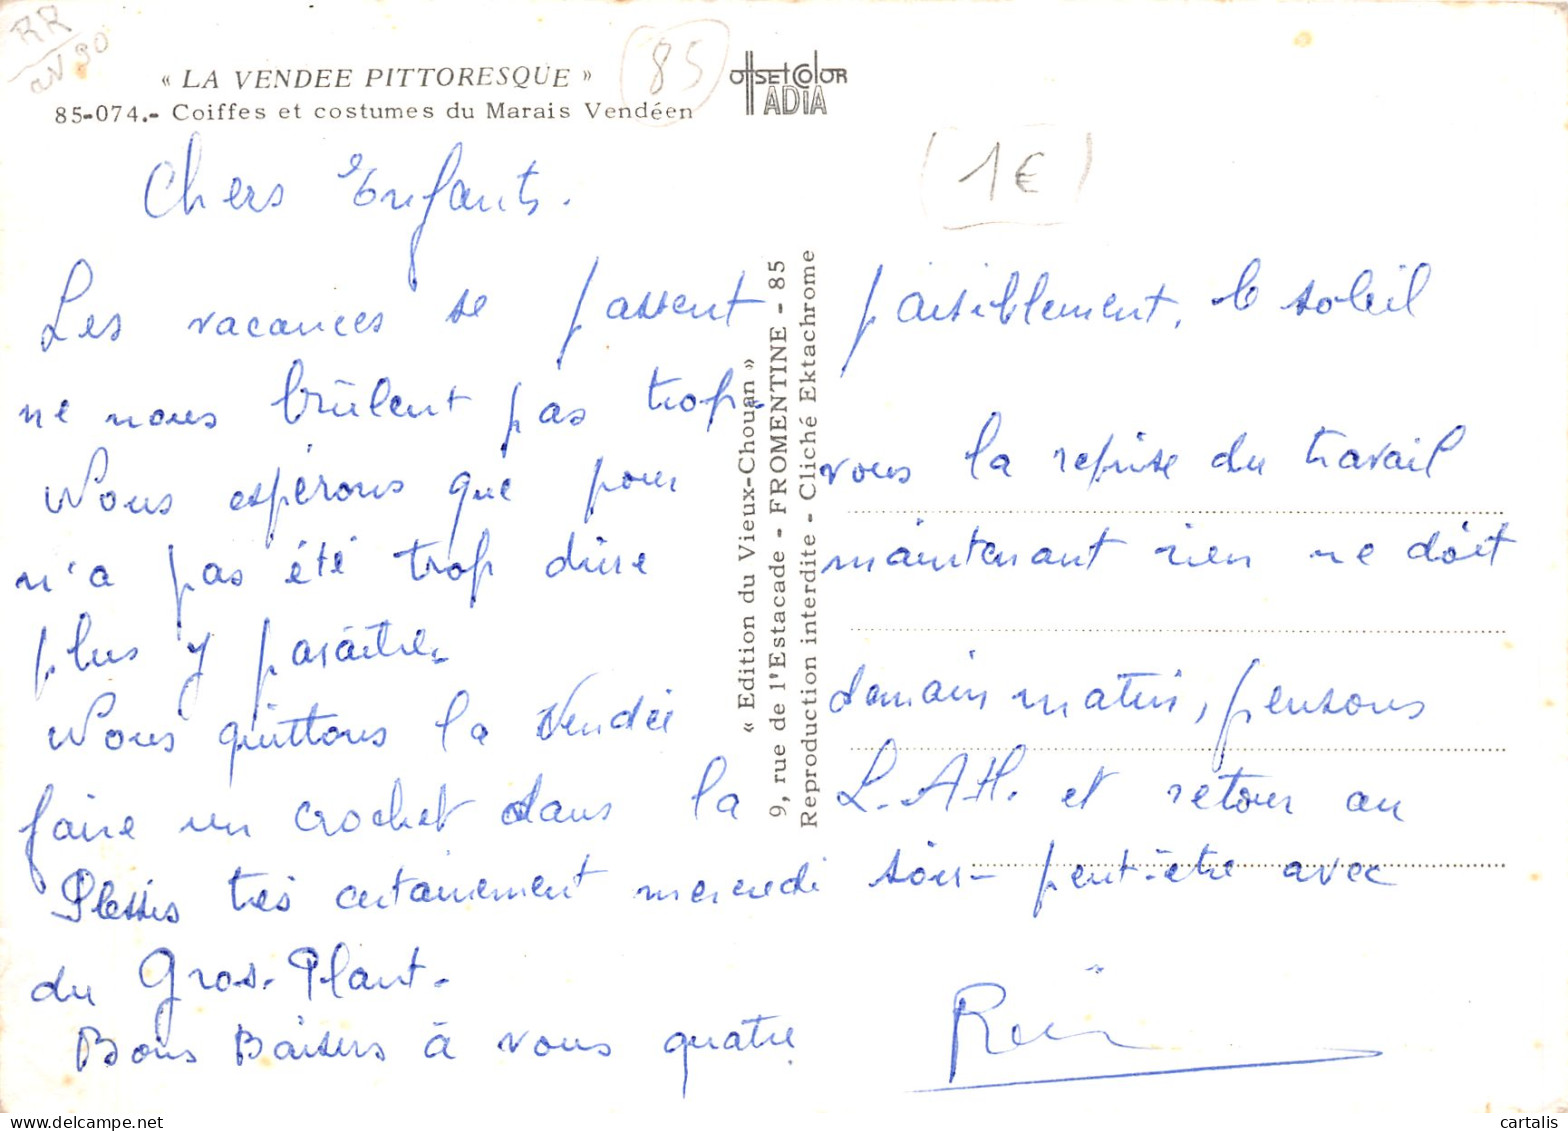 RR
« LA VENDEE PITTORESQUE »
85-074.- Coiffes et costumes du Marais Vendéen
85
OffSEt COlOR
IADIA
1€
Chers Enfants.
Les vacances se passent paisiblement, le soleil
ne nous brûlent pas trop.
Nous espérons que pour vous la reprise du travail
n'a pas été trop dure maintenant rien ne doit
plus y paraître.
Nous quittons la Vendée demain matin, pensons
faire un crochet dans la L.A.H. et retour au
Plessis très certainement mercredi soir - peut-être avec
du Gros-Plant.
Bons Baisers à vous quatre
« Edition du Vieux-Chouan »
9, rue de l'Estacade - FROMENTINE - 85
Reproduction interdite - Cliché Ektachrome
cartalis